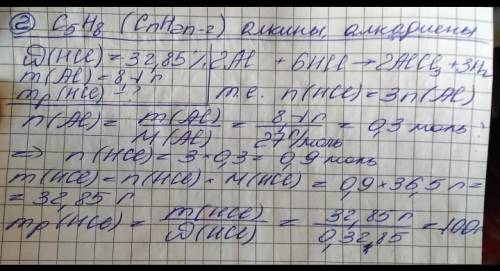 ② C₅H₈ (CnH2n-2) алкины, алкадиены
D(HCl) = 32,85% 2Al + 6HCl → 2AlCl₃ + 3H₂
m(Al) = 8,1 г
mр(HCl) - ? т.е. n(HCl) = 3n(Al)
n(Al) = m(Al)/M(Al) = 8,1 г/27 г/моль = 0,3 моль
=> n(HCl) = 3×0,3 = 0,9 моль
m(HCl) = n(HCl) × M(HCl) = 0,9 × 36,5 г =
= 32,85 г
mр(HCl) = m(HCl)/D(HCl) = 32,85 г/0,3285 = 100г